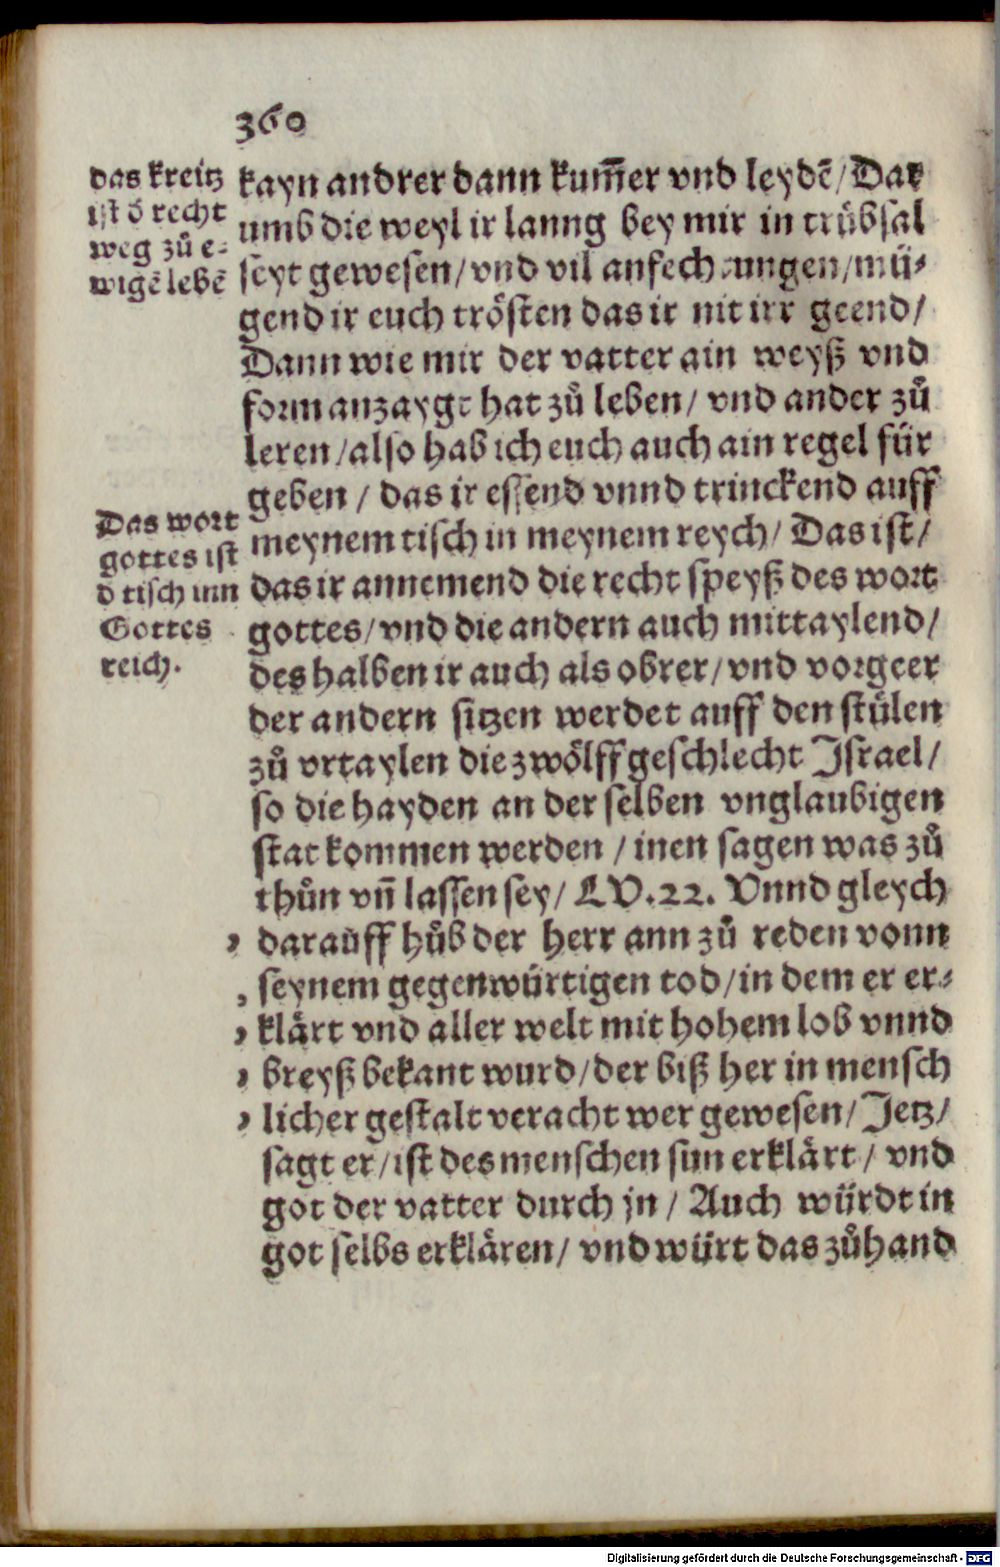 360
das kreitz
ist d̄ recht
weg zů e⸗
wigē lebē
kayn andrer dann kum̄er vnd leydē/Dar
umb die weyl ir lanng bey mir in trübsal
seyt gewesen/vnd vil anfechtungen/mü⸗
gend ir euch trösten das ir nit irr geend/
Dann wie mir der vatter ain weyß vnd
form anzaygt hat zů leben/ vnd ander zů
leren/also hab ich euch auch ain regel für
geben / das ir essend vnnd trinckend auff
Das wort
gottes ist
d̄ tisch inn
Gottes
reich.
meynem tisch in meynem reych/ Das ist/
das ir annemend die recht speyß des wort
gottes/vnd die andern auch mittaylend/
des halben ir auch als obrer/vnd vorgeer
der andern sitzen werdet auff den stülen
zů vrtaylen die zwölff geschlecht Israel/
so die hayden an der selben vnglaubigen
stat kommen werden / inen sagen was zů
thůn vn̄ lassen sey/ LV.22. Vnnd gleych
darauff hůb der herr ann zů reden vonn
seynem gegenwürtigen tod/in dem er er⸗
klärt vnd aller welt mit hohem lob vnnd
breyß bekant wurd/der biß her in mensch
licher gestalt veracht wer gewesen/Jetz/
sagt er/ist des menschen sun erklärt/ vnd
got der vatter durch jn / Auch würdt in
got selbs erklären/ vnd würt das zůhand
Digitalisierung gefördert durch die Deutsche Forschungsgemeinschaft - DFG